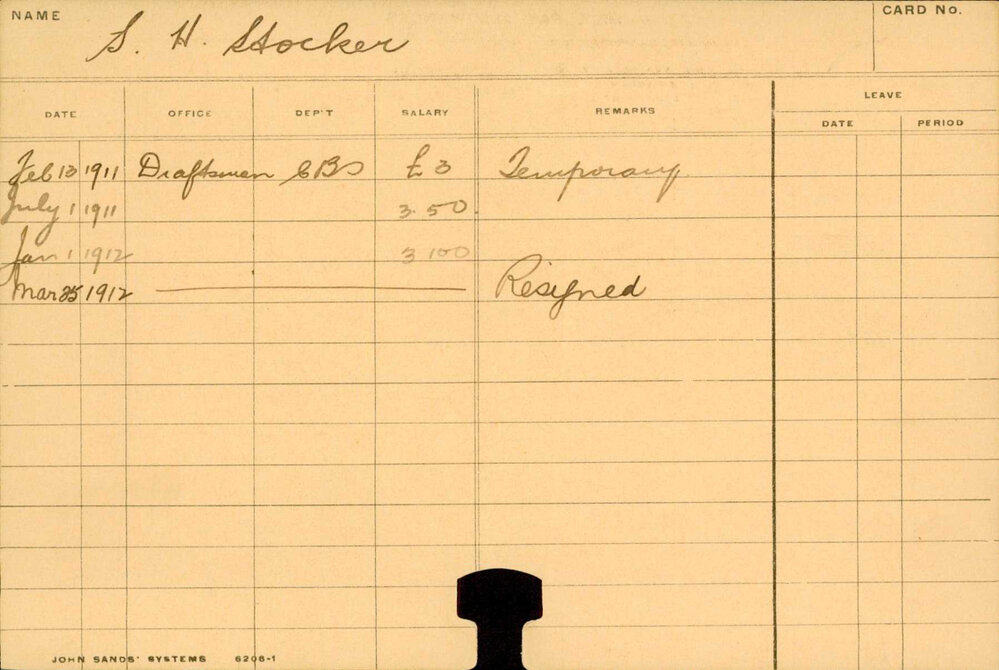 NAME S. H. Stocker CARD No.
LEAVE
DATE OFFICE DEP'T SALARY REMARKS DATE PERIOD
Feb 13 1911 Draftsman CBS £3 Temporary
July 1 1911 3.50
Jan 1 1912 3 100
Mar 25 1912 Resigned
JOHN SANDS' SYSTEMS 6206-1